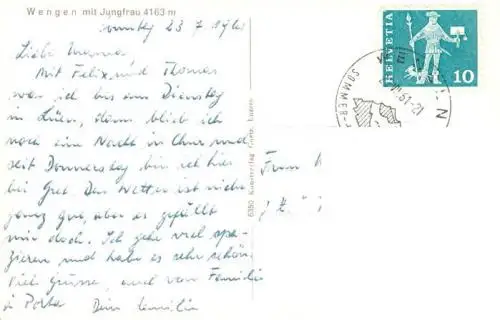 Wengen mit Jungfrau 4163 m
Sonntag 23 7 1961
Liebe Mamma
Mit Felix und Thomas
war ich bis am Dienstag
in Lüen, dann blieb ich
noch eine Nacht in Chur und
seit Donnerstag bin ich hier
bei Gret. Das Wetter ist nicht
ganz gut, aber es gefällt
mir doch. Ich gehe viel spa-
zieren und habe es sehr schön.
Viel Grüsse, auch von Familie
à Porta Dein
HELVETIA
10
SOMMER-
61-21
Frau
6350